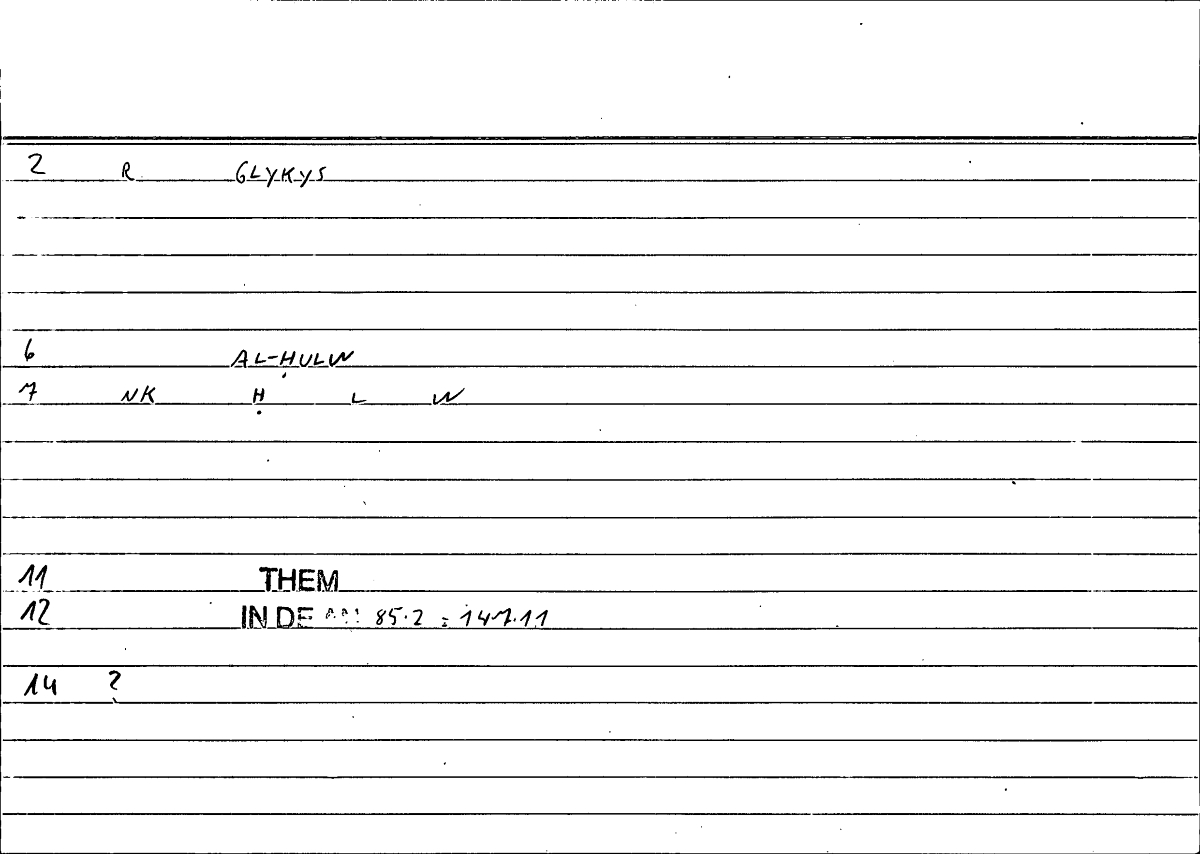 2 R GLYKYS
6 AL-ḤULW
7 NK Ḥ L W
11 THEM
12 IN DE AN 85.2 = 147.11
14 ?